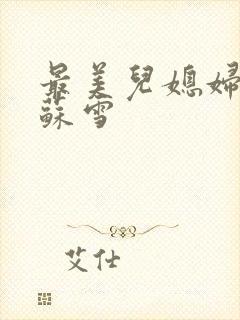 最美兒媳婦
蘇雪
艾仕